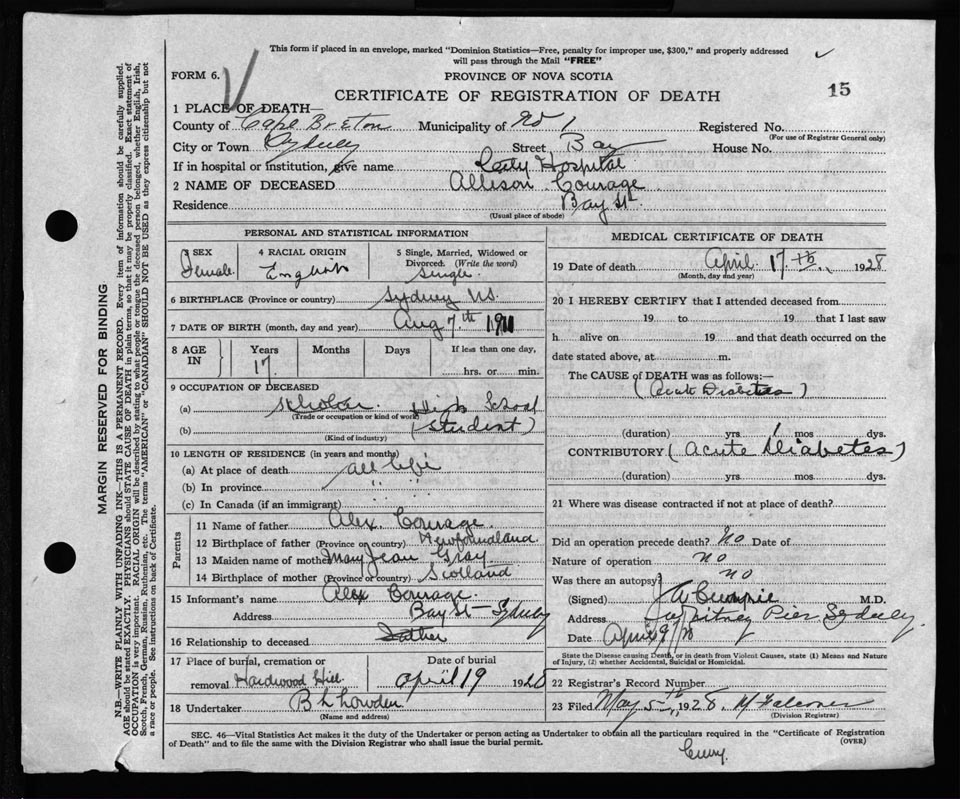 This form if placed in an envelope, marked "Dominion Statistics—Free, penalty for improper use, $300," and properly addressed
will pass through the Mail "FREE"
FORM 6.
PROVINCE OF NOVA SCOTIA
CERTIFICATE OF REGISTRATION OF DEATH
15
1 PLACE OF DEATH—
County of Cape Breton Municipality of No 1 Registered No.
(For use of Registrar General only)
City or Town Sydney Street Bay House No.
If in hospital or Institution, give name Hospital
2 NAME OF DECEASED Allison Courage
Residence Bay St.
(Usual place of abode)
PERSONAL AND STATISTICAL INFORMATION
3 SEX Female
4 RACIAL ORIGIN English
5 Single, Married, Widowed or Divorced. (Write the word) Single.
6 BIRTHPLACE (Province or country) Sydney N.S.
7 DATE OF BIRTH (month, day and year) Aug 7th 1911
8 AGE IN Years 17. Months Days If less than one day, hrs. or min.
9 OCCUPATION OF DECEASED
(a) Scholar High School
(Trade or occupation or kind of work)
(b) (Student)
(Kind of industry)
10 LENGTH OF RESIDENCE (in years and months)
(a) At place of death all life
(b) In province " "
(c) In Canada (if an immigrant)
Parents
11 Name of father Alex. Courage
12 Birthplace of father (Province or country) Newfoundland
13 Maiden name of mother Mary Jean Gray
14 Birthplace of mother (Province or country) Scotland
15 Informant's name Alex Courage
Address Bay St Sydney
16 Relationship to deceased Father
17 Place of burial, cremation or removal Hardwood Hill
Date of burial April 19 1928
18 Undertaker B L Lowden
(Name and address)
MEDICAL CERTIFICATE OF DEATH
19 Date of death April 17th 1928
(Month, day and year)
20 I HEREBY CERTIFY that I attended deceased from
19 to 19 that I last saw
h alive on 19 and that death occurred on the
date stated above, at m.
The CAUSE of DEATH was as follows:—
(Acute Diabetes)
(duration) yrs 1 mos dys.
CONTRIBUTORY (Acute Diabetes)
(duration) yrs mos dys.
21 Where was disease contracted if not at place of death?
Did an operation precede death? No Date of
Nature of operation no
Was there an autopsy? no
(Signed) M.D.
Address Whitney Pier Sydney
Date April
State the Disease causing Death, or in death from Violent Causes, state (1) Means and Nature
of Injury, (2) whether Accidental, Suicidal or Homicidal.
22 Registrar's Record Number
23 Filed May 5th 1928 M Falconer
(Division Registrar)
SEC. 46—Vital Statistics Act makes it the duty of the Undertaker or person acting as Undertaker to obtain all the particulars required in the "Certificate of Registration
of Death" and to file the same with the Division Registrar who shall issue the burial permit.
(OVER)
MARGIN RESERVED FOR BINDING
N.B.—WRITE PLAINLY WITH UNFADING INK—THIS IS A PERMANENT RECORD. Every item of information should be carefully supplied.
AGE should be stated EXACTLY. PHYSICIANS should STATE CAUSE OF DEATH in plain terms, so that it may be properly classified. Exact statement of
OCCUPATION is very important. RACIAL ORIGIN will be described by stating to what people or tongue the deceased person belonged, whether English, Irish,
Scotch, French, German, Russian, Ruthenian, etc. The terms "AMERICAN" or "CANADIAN" SHOULD NOT BE USED as they express citizenship but not
a race or people. See instructions on back of Certificate.